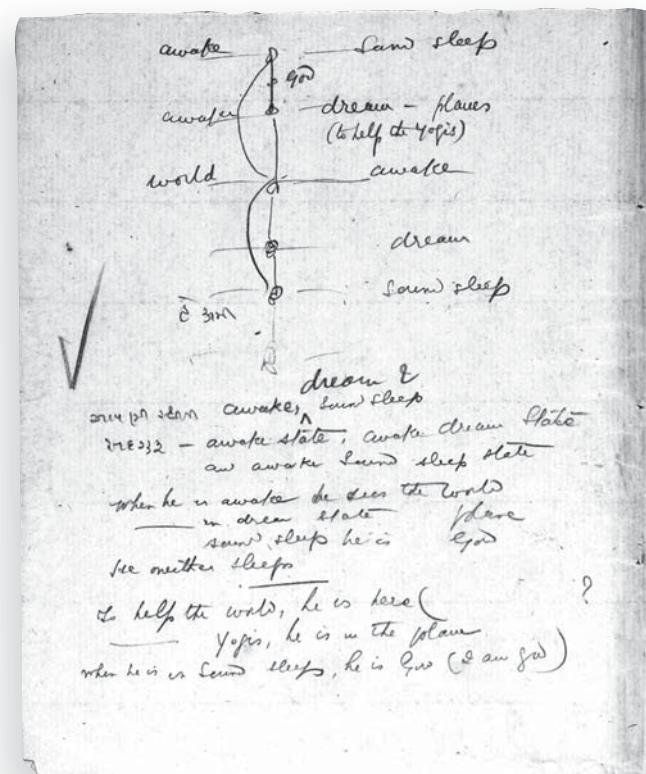 awake Sound sleep
God
awake dream – planes
(to help the Yogis)
world awake
dream
Sound sleep
dream &
awake, ^ Sound sleep
સદગુરૂ – awake state, awake dream State
an awake Sound sleep state
When he is awake he sees the world
— in dream state plane
sound sleep he is God
neither sleeps
To help the world, he is here (
— Yogis, he is in the plane ?
when he is in Sound sleep, he is God (I am God)